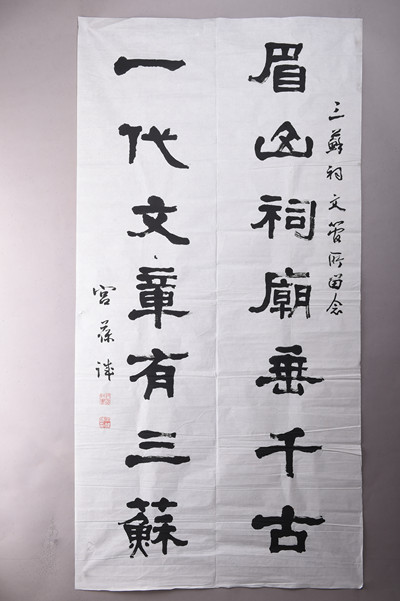 三蘇祠文管所留念
眉山祠廟垂千古
一代文章有三蘇
宮葆诚